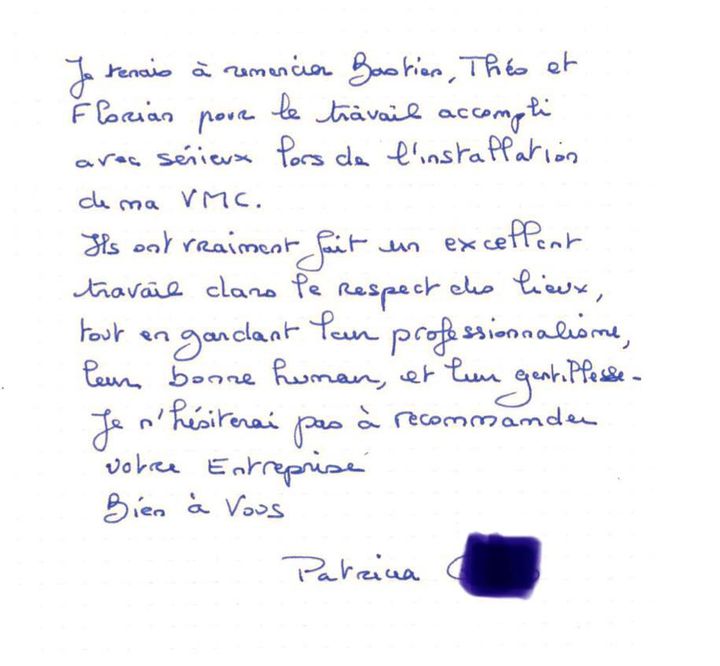 Je tenais à remercier Bastien, Théo et
Florian pour le travail accompli
avec sérieux lors de l'installation
de ma VMC.
Ils ont vraiment fait un excellent
travail dans le respect des lieux,
tout en gardant leur professionnalisme,
leur bonne humeur, et leur gentillesse.
Je n'hésiterai pas à recommander
votre Entreprise
Bien à Vous
Patricia